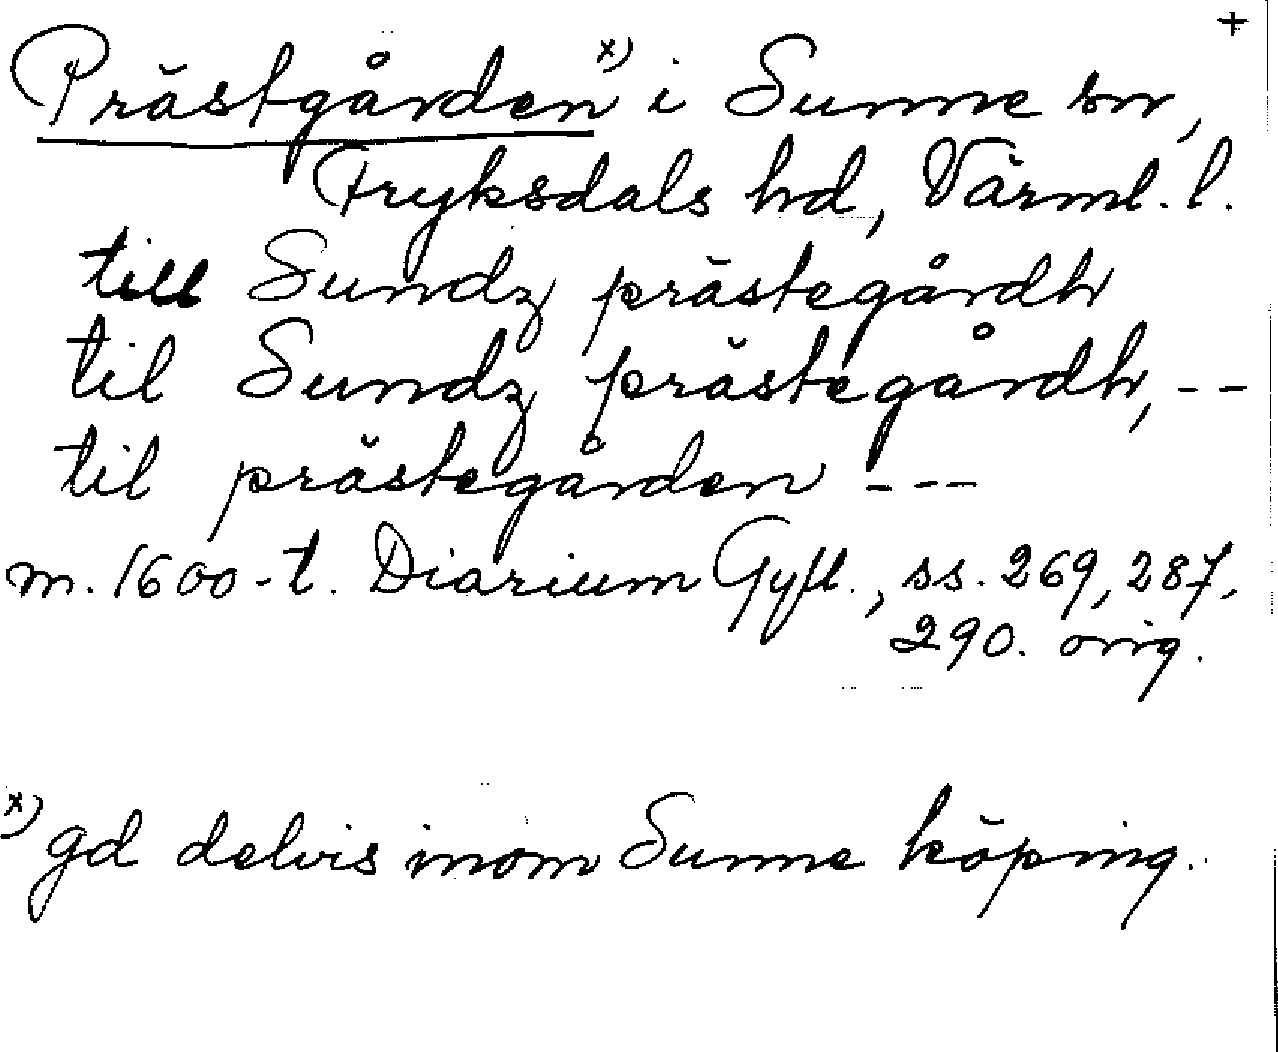 +
Prästgården x) i Sunne sn,
Fryksdals hd, Värml. l.
till Sundz prästegårdh
til Sundz prästegårdh, --
til prästegården ---
m. 1600-t. Diarium Gyll., ss. 269, 287,
290. orig.
x) gd delvis inom Sunne köping.